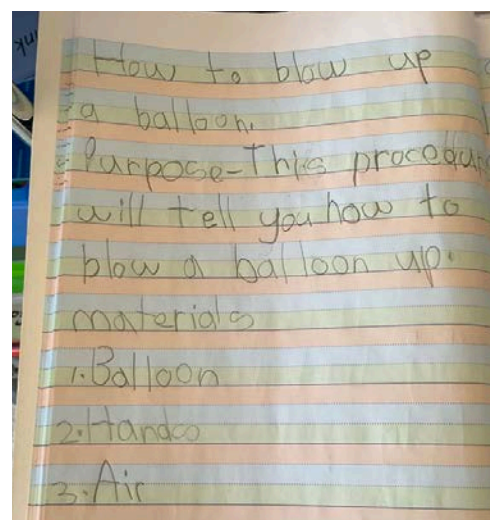 How to blow up
a balloon.
Purpose-This procedur
will tell you how to
blow a balloon up.
materials
1.Balloon
2.Hands
3.Air